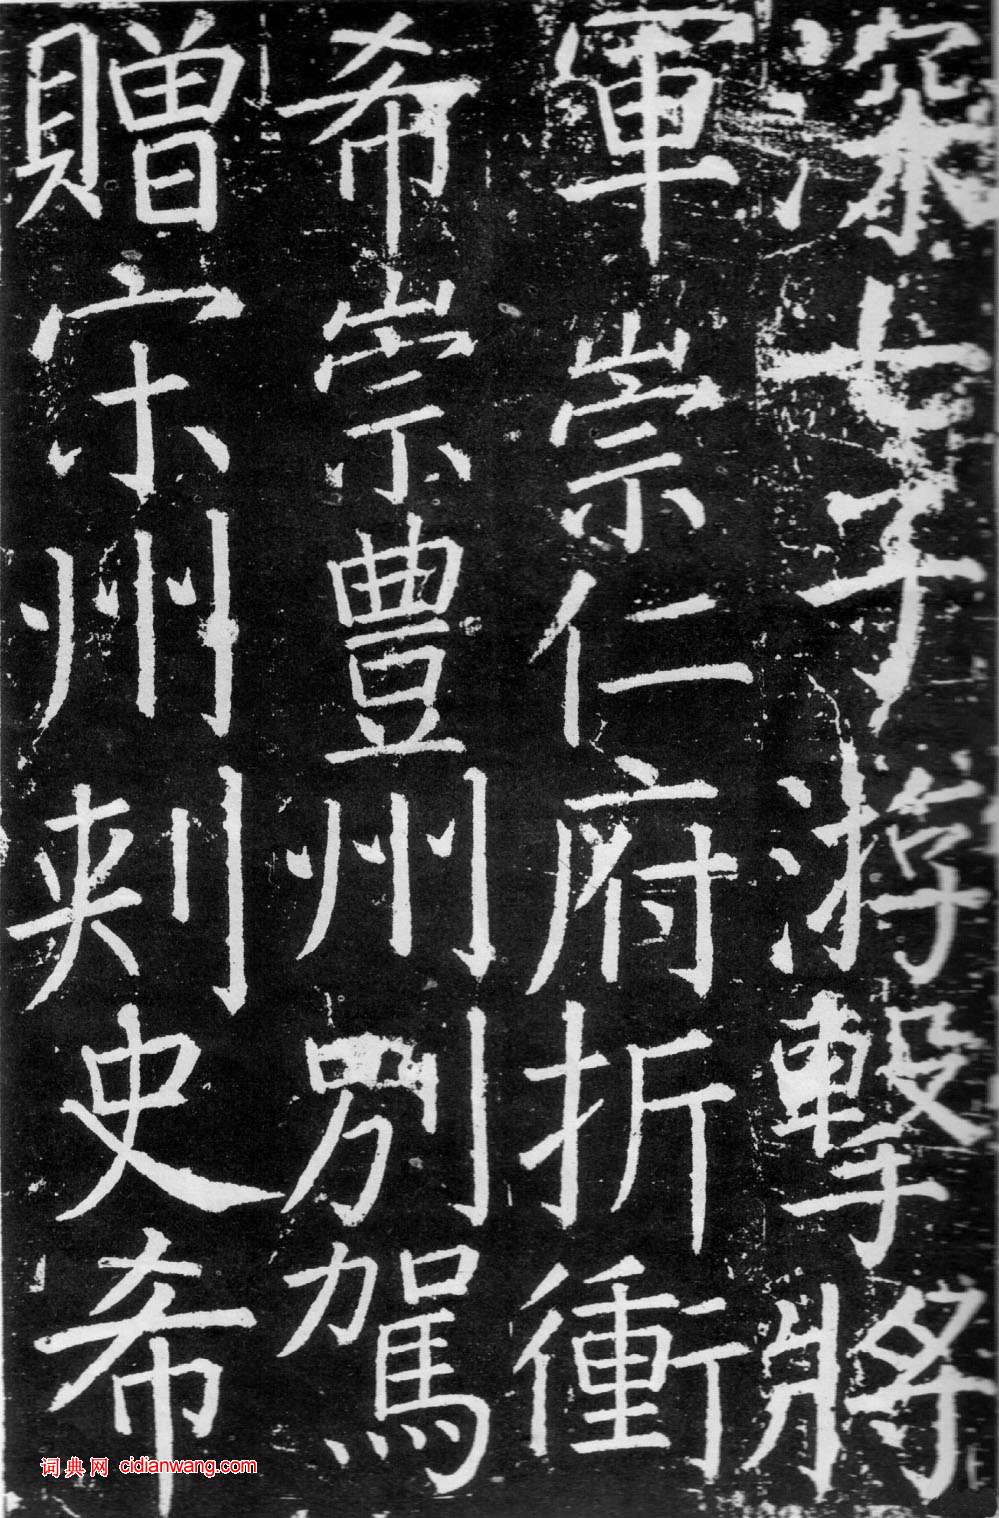 深七子游擊將
軍崇仁府折衝
希崇豐州別駕
贈宋州刾史希
词典网 cidianwang.com